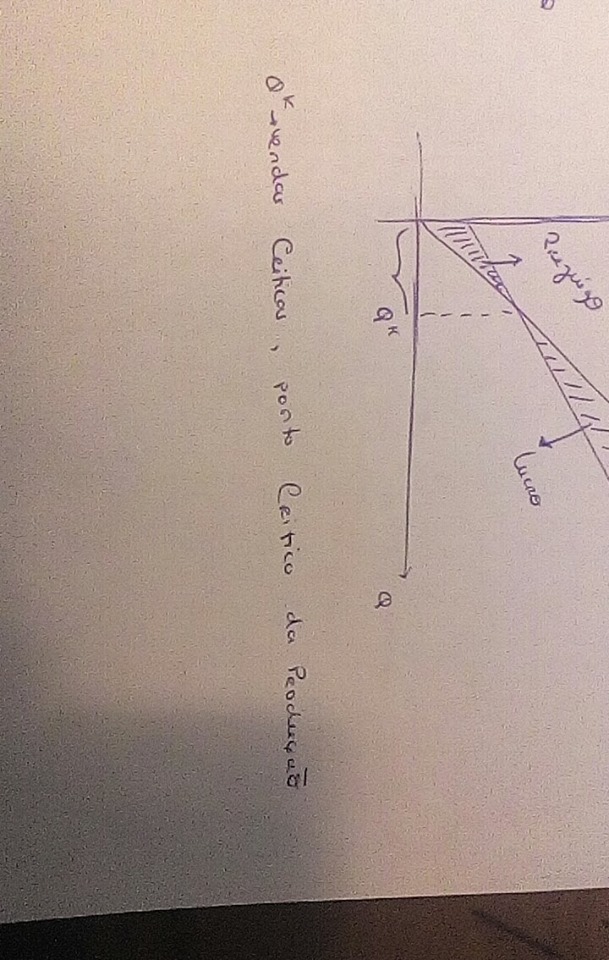 Prejuízo
Lucro
Qᴷ
Q
Qᴷ → vendas Criticas, ponto Critico da Produção